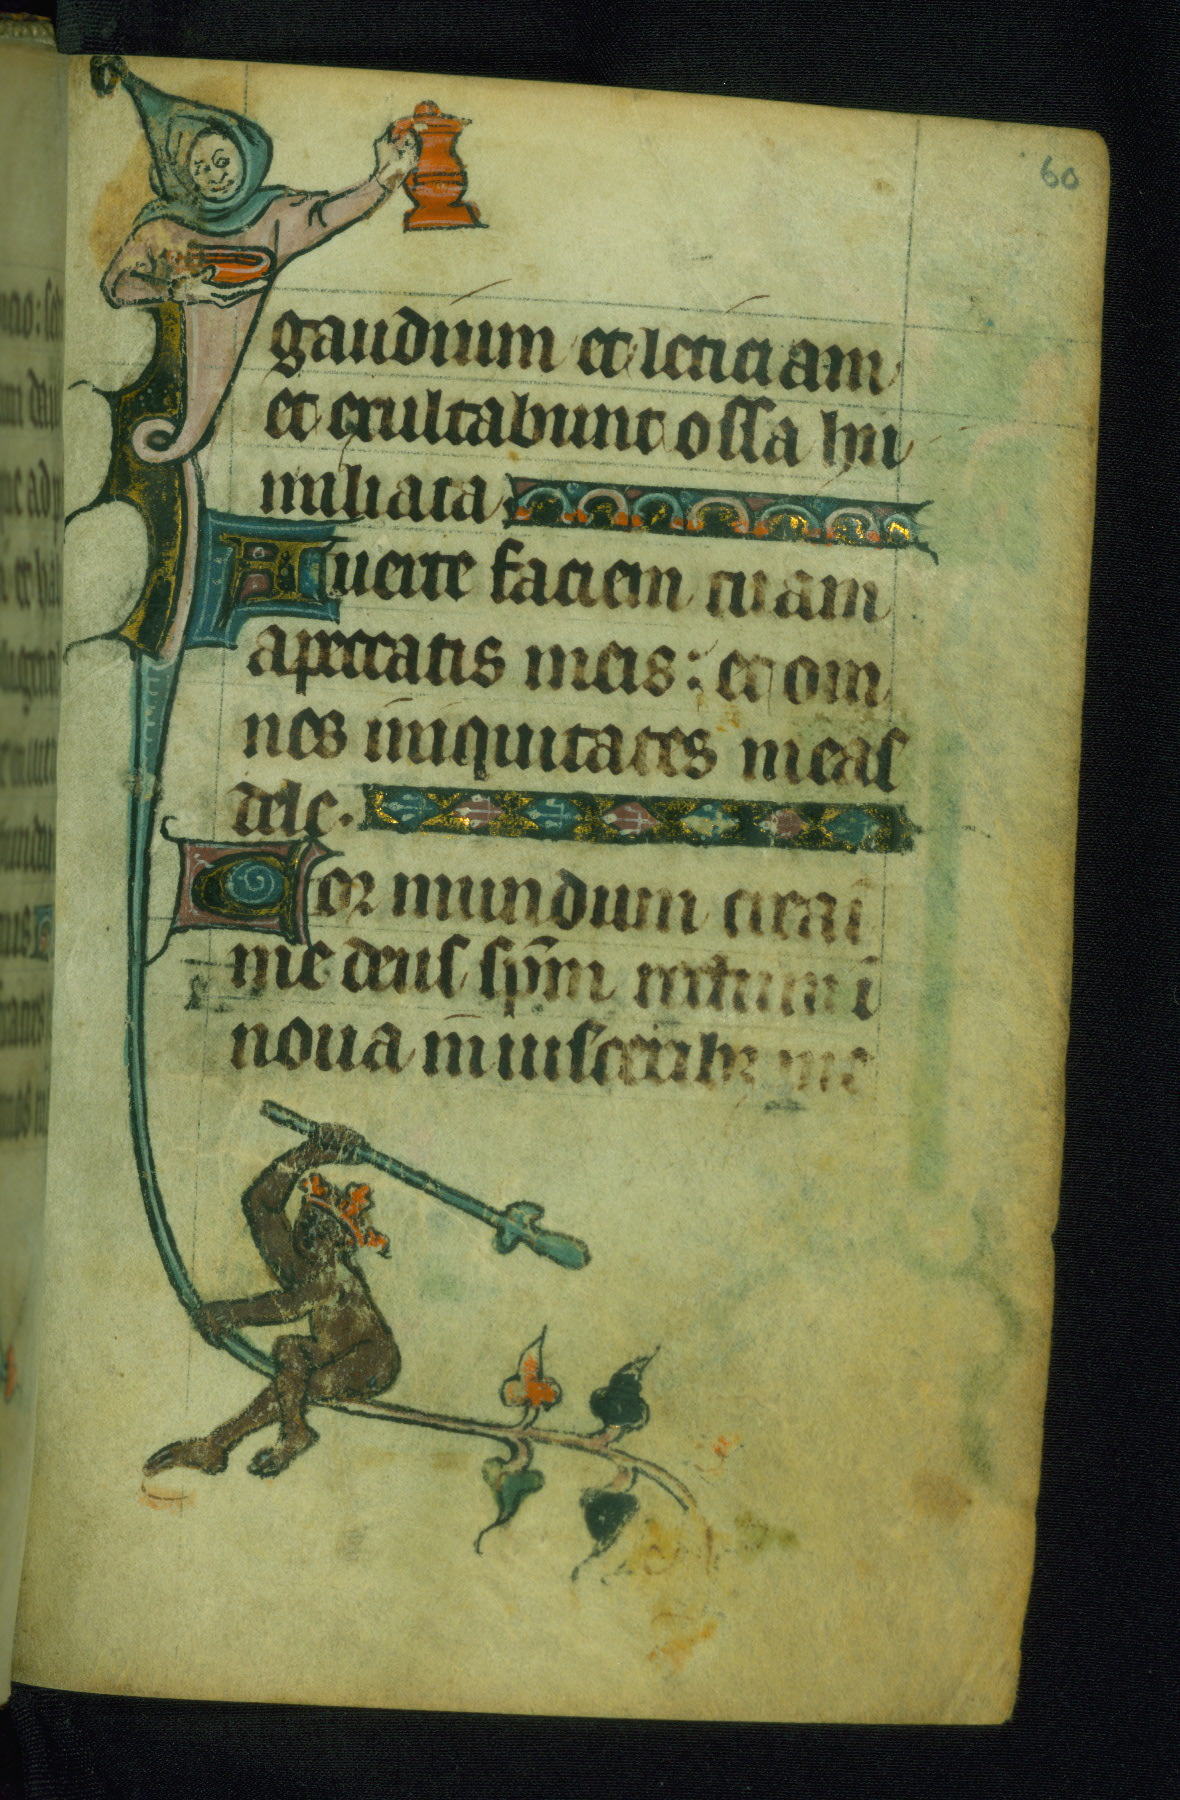 60
gaudium et leticiam
et exultabunt ossa hu
miliata
Auerte faciem tuam
a peccatis meis: et om
nes iniquitates meas
dele.
Cor mundum crea ī
me deus sp̄m rectum ī
noua in uisceribꝫ me